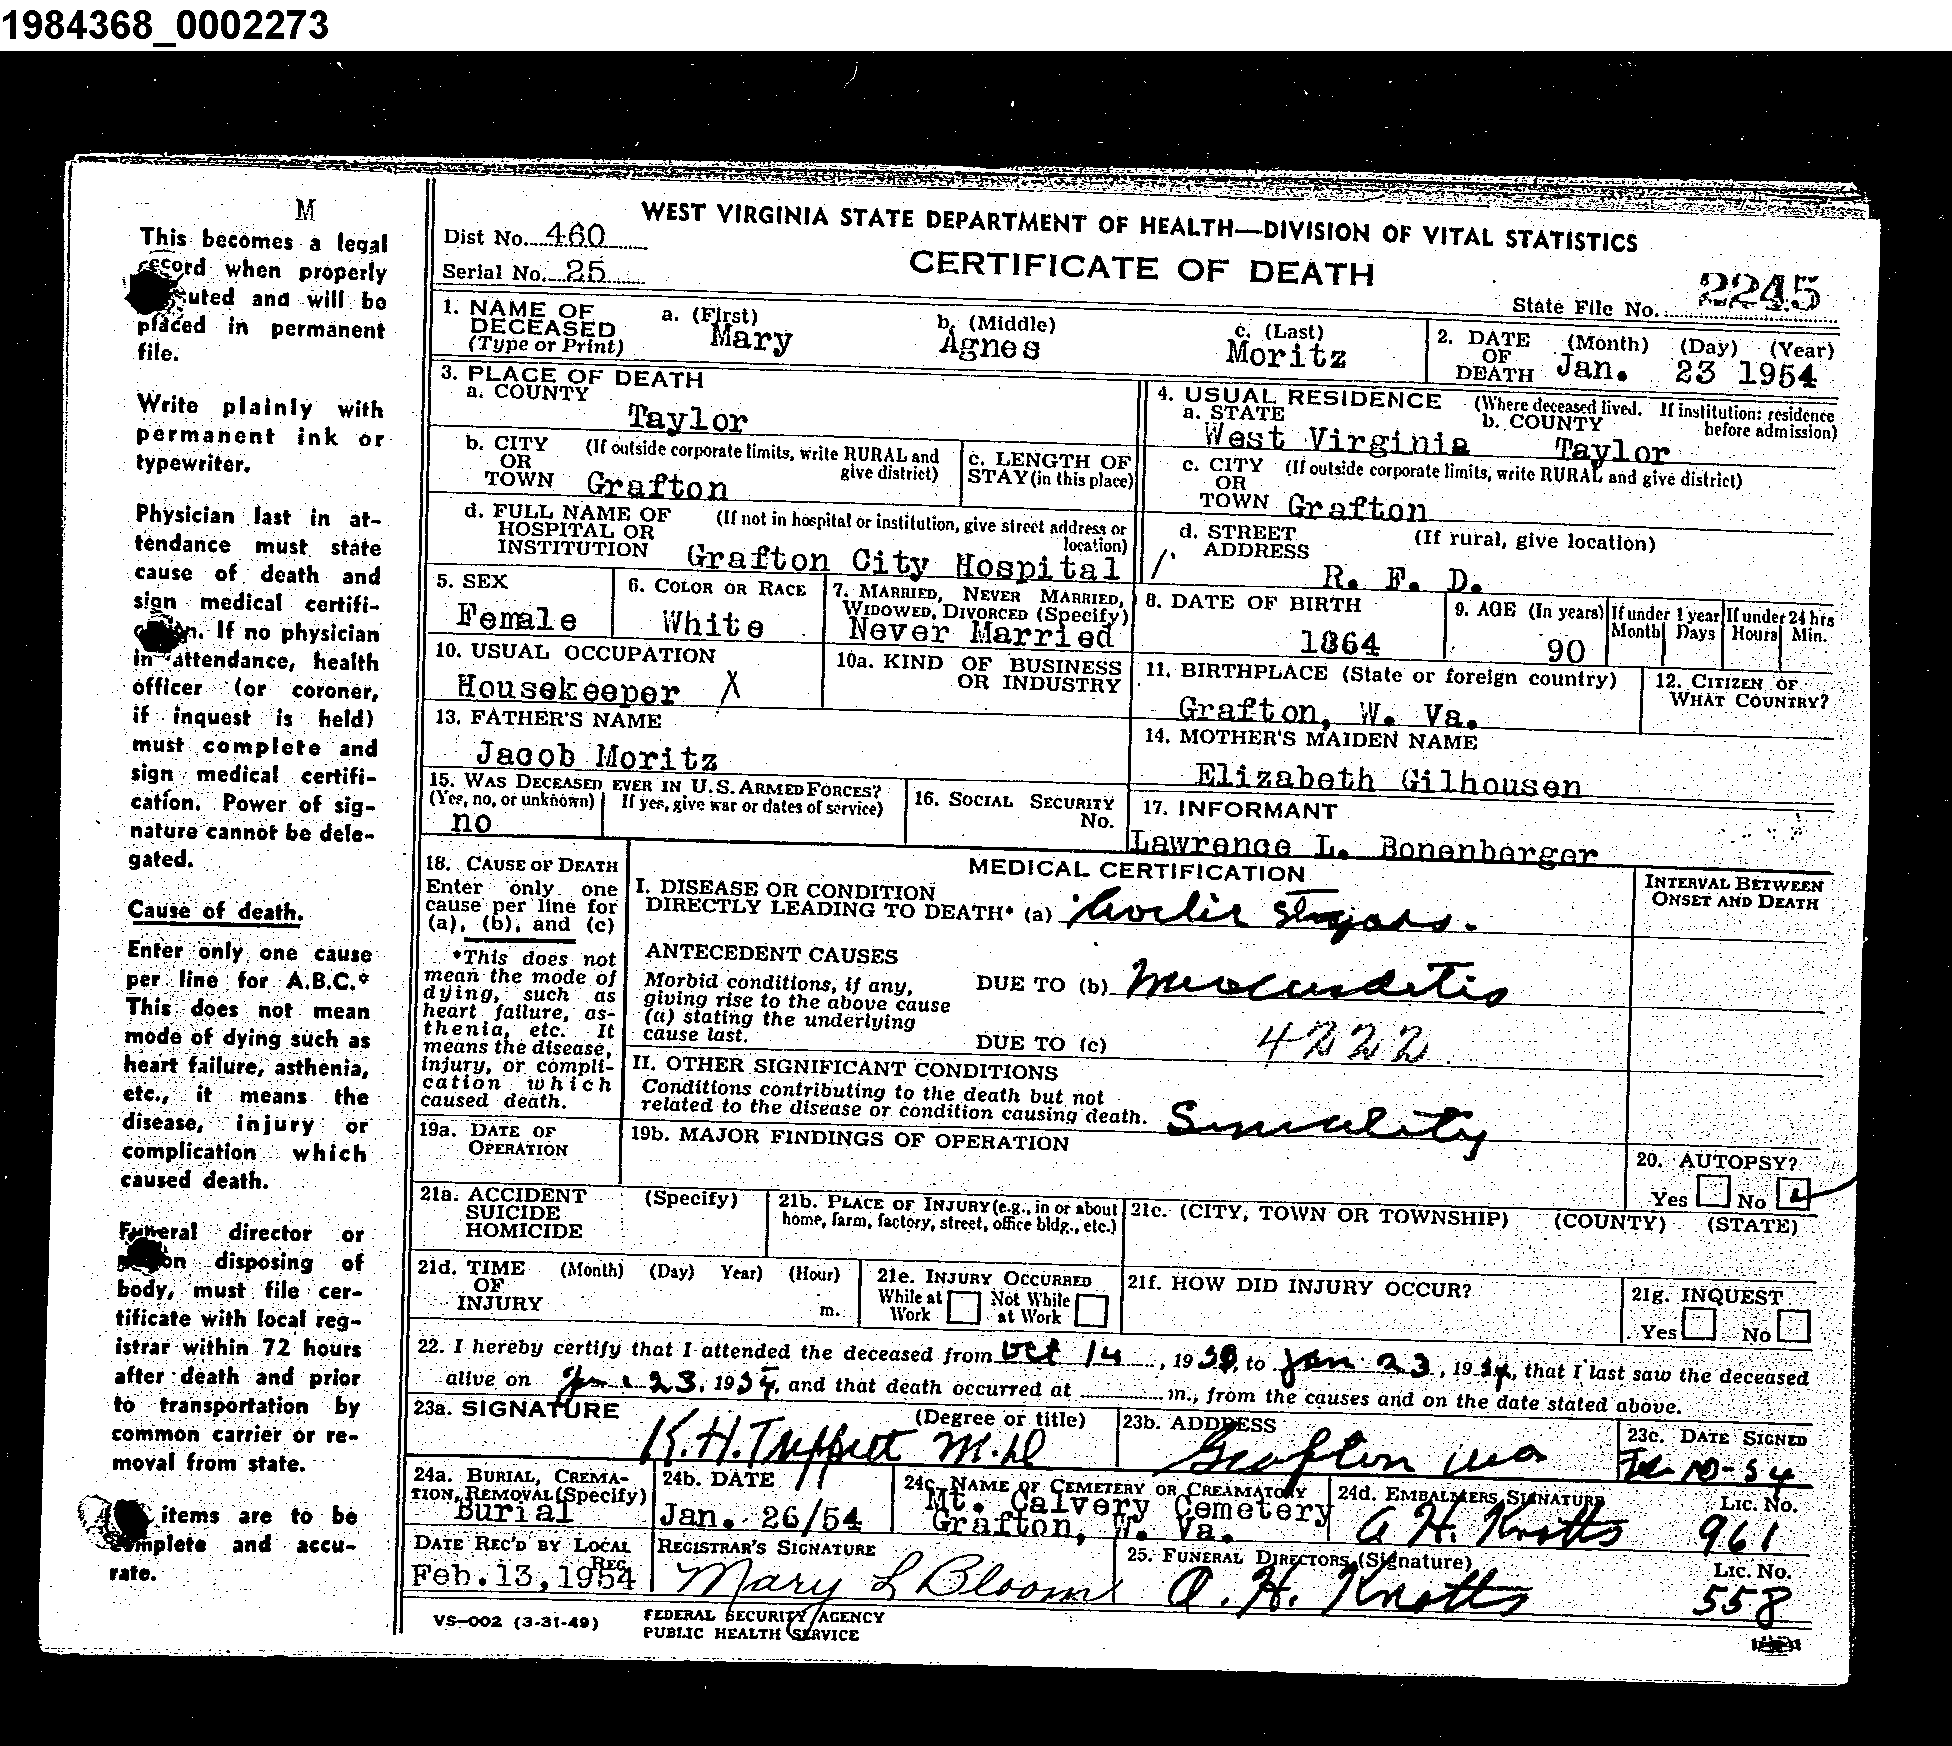 1984368_0002273
M
This becomes a legal
record when properly
uted and will be
placed in permanent
file.
Write plainly with
permanent ink or
typewriter.
Physician last in at-
tendance must state
cause of death and
sign medical certifi-
If no physician
in attendance, health
officer (or coroner,
if inquest is held)
must complete and
sign medical certifi-
cation. Power of sig-
nature cannot be dele-
gated.
Cause of death.
Enter only one cause
per line for A.B.C.*
This does not mean
mode of dying such as
heart failure, asthenia,
etc., it means the
disease, injury or
complication which
caused death.
Funeral director or
disposing of
body, must file cer-
tificate with local reg-
istrar within 72 hours
after death and prior
to transportation by
common carrier or re-
moval from state.
items are to be
complete and accu-
rate.
WEST VIRGINIA STATE DEPARTMENT OF HEALTH—DIVISION OF VITAL STATISTICS
Dist No. 460
CERTIFICATE OF DEATH
Serial No. 25
State File No. 2245
1. NAME OF DECEASED (Type or Print)
a. (First) Mary
b. (Middle) Agnes
c. (Last) Moritz
2. DATE OF DEATH (Month) (Day) (Year)
Jan. 23 1954
3. PLACE OF DEATH
a. COUNTY
Taylor
4. USUAL RESIDENCE (Where deceased lived. If institution: residence before admission)
a. STATE b. COUNTY
West Virginia Taylor
b. CITY OR TOWN (If outside corporate limits, write RURAL and give district)
Grafton
c. LENGTH OF STAY (in this place)
c. CITY OR TOWN (If outside corporate limits, write RURAL and give district)
Grafton
d. FULL NAME OF HOSPITAL OR INSTITUTION (If not in hospital or institution, give street address or location)
Grafton City Hospital
d. STREET ADDRESS (If rural, give location)
R. F. D.
5. SEX
Female
6. COLOR OR RACE
White
7. MARRIED, NEVER MARRIED, WIDOWED, DIVORCED (Specify)
Never Married
8. DATE OF BIRTH
1864
9. AGE (In years)
90
If under 1 year
Month Days
If under 24 hrs
Hours Min.
10. USUAL OCCUPATION
Housekeeper X
10a. KIND OF BUSINESS OR INDUSTRY
11. BIRTHPLACE (State or foreign country)
Grafton, W. Va.
12. CITIZEN OF WHAT COUNTRY?
13. FATHER'S NAME
Jacob Moritz
14. MOTHER'S MAIDEN NAME
Elizabeth Gilhousen
15. WAS DECEASED EVER IN U.S. ARMED FORCES?
(Yes, no, or unknown) If yes, give war or dates of service)
no
16. SOCIAL SECURITY No.
17. INFORMANT
Lawrence L. Bonenberger
18. CAUSE OF DEATH
Enter only one
cause per line for
(a), (b), and (c)
*This does not
mean the mode of
dying, such as
heart failure, as-
thenia, etc. It
means the disease,
injury, or compli-
cation which
caused death.
MEDICAL CERTIFICATION
INTERVAL BETWEEN ONSET AND DEATH
I. DISEASE OR CONDITION
DIRECTLY LEADING TO DEATH* (a)
ANTECEDENT CAUSES
Morbid conditions, if any,
giving rise to the above cause
(a) stating the underlying
cause last.
DUE TO (b) Miocarditis
DUE TO (c)
4222
II. OTHER SIGNIFICANT CONDITIONS
Conditions contributing to the death but not
related to the disease or condition causing death.
19a. DATE OF OPERATION
19b. MAJOR FINDINGS OF OPERATION
20. AUTOPSY?
Yes No
21a. ACCIDENT SUICIDE HOMICIDE (Specify)
21b. PLACE OF INJURY (e.g., in or about
home, farm, factory, street, office bldg., etc.)
21c. (CITY, TOWN OR TOWNSHIP) (COUNTY) (STATE)
21d. TIME OF INJURY (Month) (Day) Year) (Hour) m.
21e. INJURY OCCURRED
While at Work Not While at Work
21f. HOW DID INJURY OCCUR?
21g. INQUEST
Yes No
22. I hereby certify that I attended the deceased from Oct 14, 19 , to Jan 23, 1954, that I last saw the deceased
alive on Jan 23, 1954, and that death occurred at m., from the causes and on the date stated above.
23a. SIGNATURE (Degree or title)
K. H. Trippett M.D
23b. ADDRESS
Grafton
23c. DATE SIGNED
Feb 10-54
24a. BURIAL, CREMA-
TION, REMOVAL (Specify)
Burial
24b. DATE
Jan. 26/54
24c. NAME OF CEMETERY OR CREAMATORY
Mt. Calvery Cemetery
Grafton, W. Va.
24d. EMBALMERS SIGNATURE Lic. No.
A H. Knotts 961
DATE REC'D BY LOCAL REG.
Feb. 13, 1954
REGISTRAR'S SIGNATURE
Mary L Bloom
25. FUNERAL DIRECTORS (Signature) Lic. No.
A. H. Knotts 558
VS—002 (3-31-49)
FEDERAL SECURITY AGENCY
PUBLIC HEALTH SERVICE